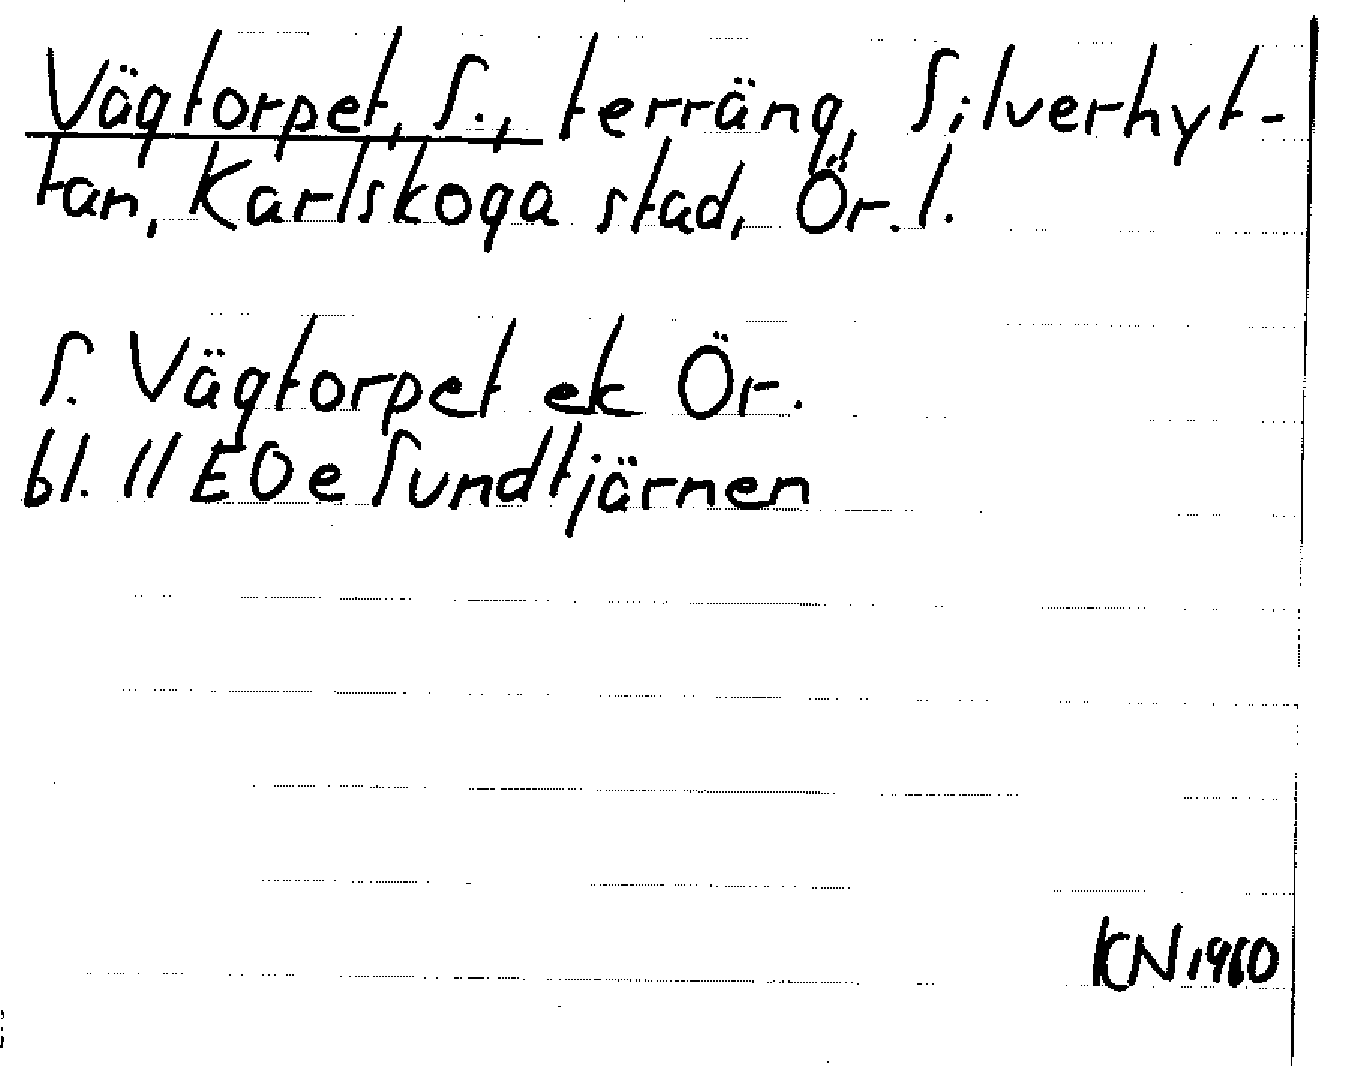 Vägtorpet, S., terräng, Silverhyt-
tan, Karlskoga stad, Ör. l.
S. Vägtorpet ek Ör.
bl. 11 EO e Sundtjärnen
KN 1960